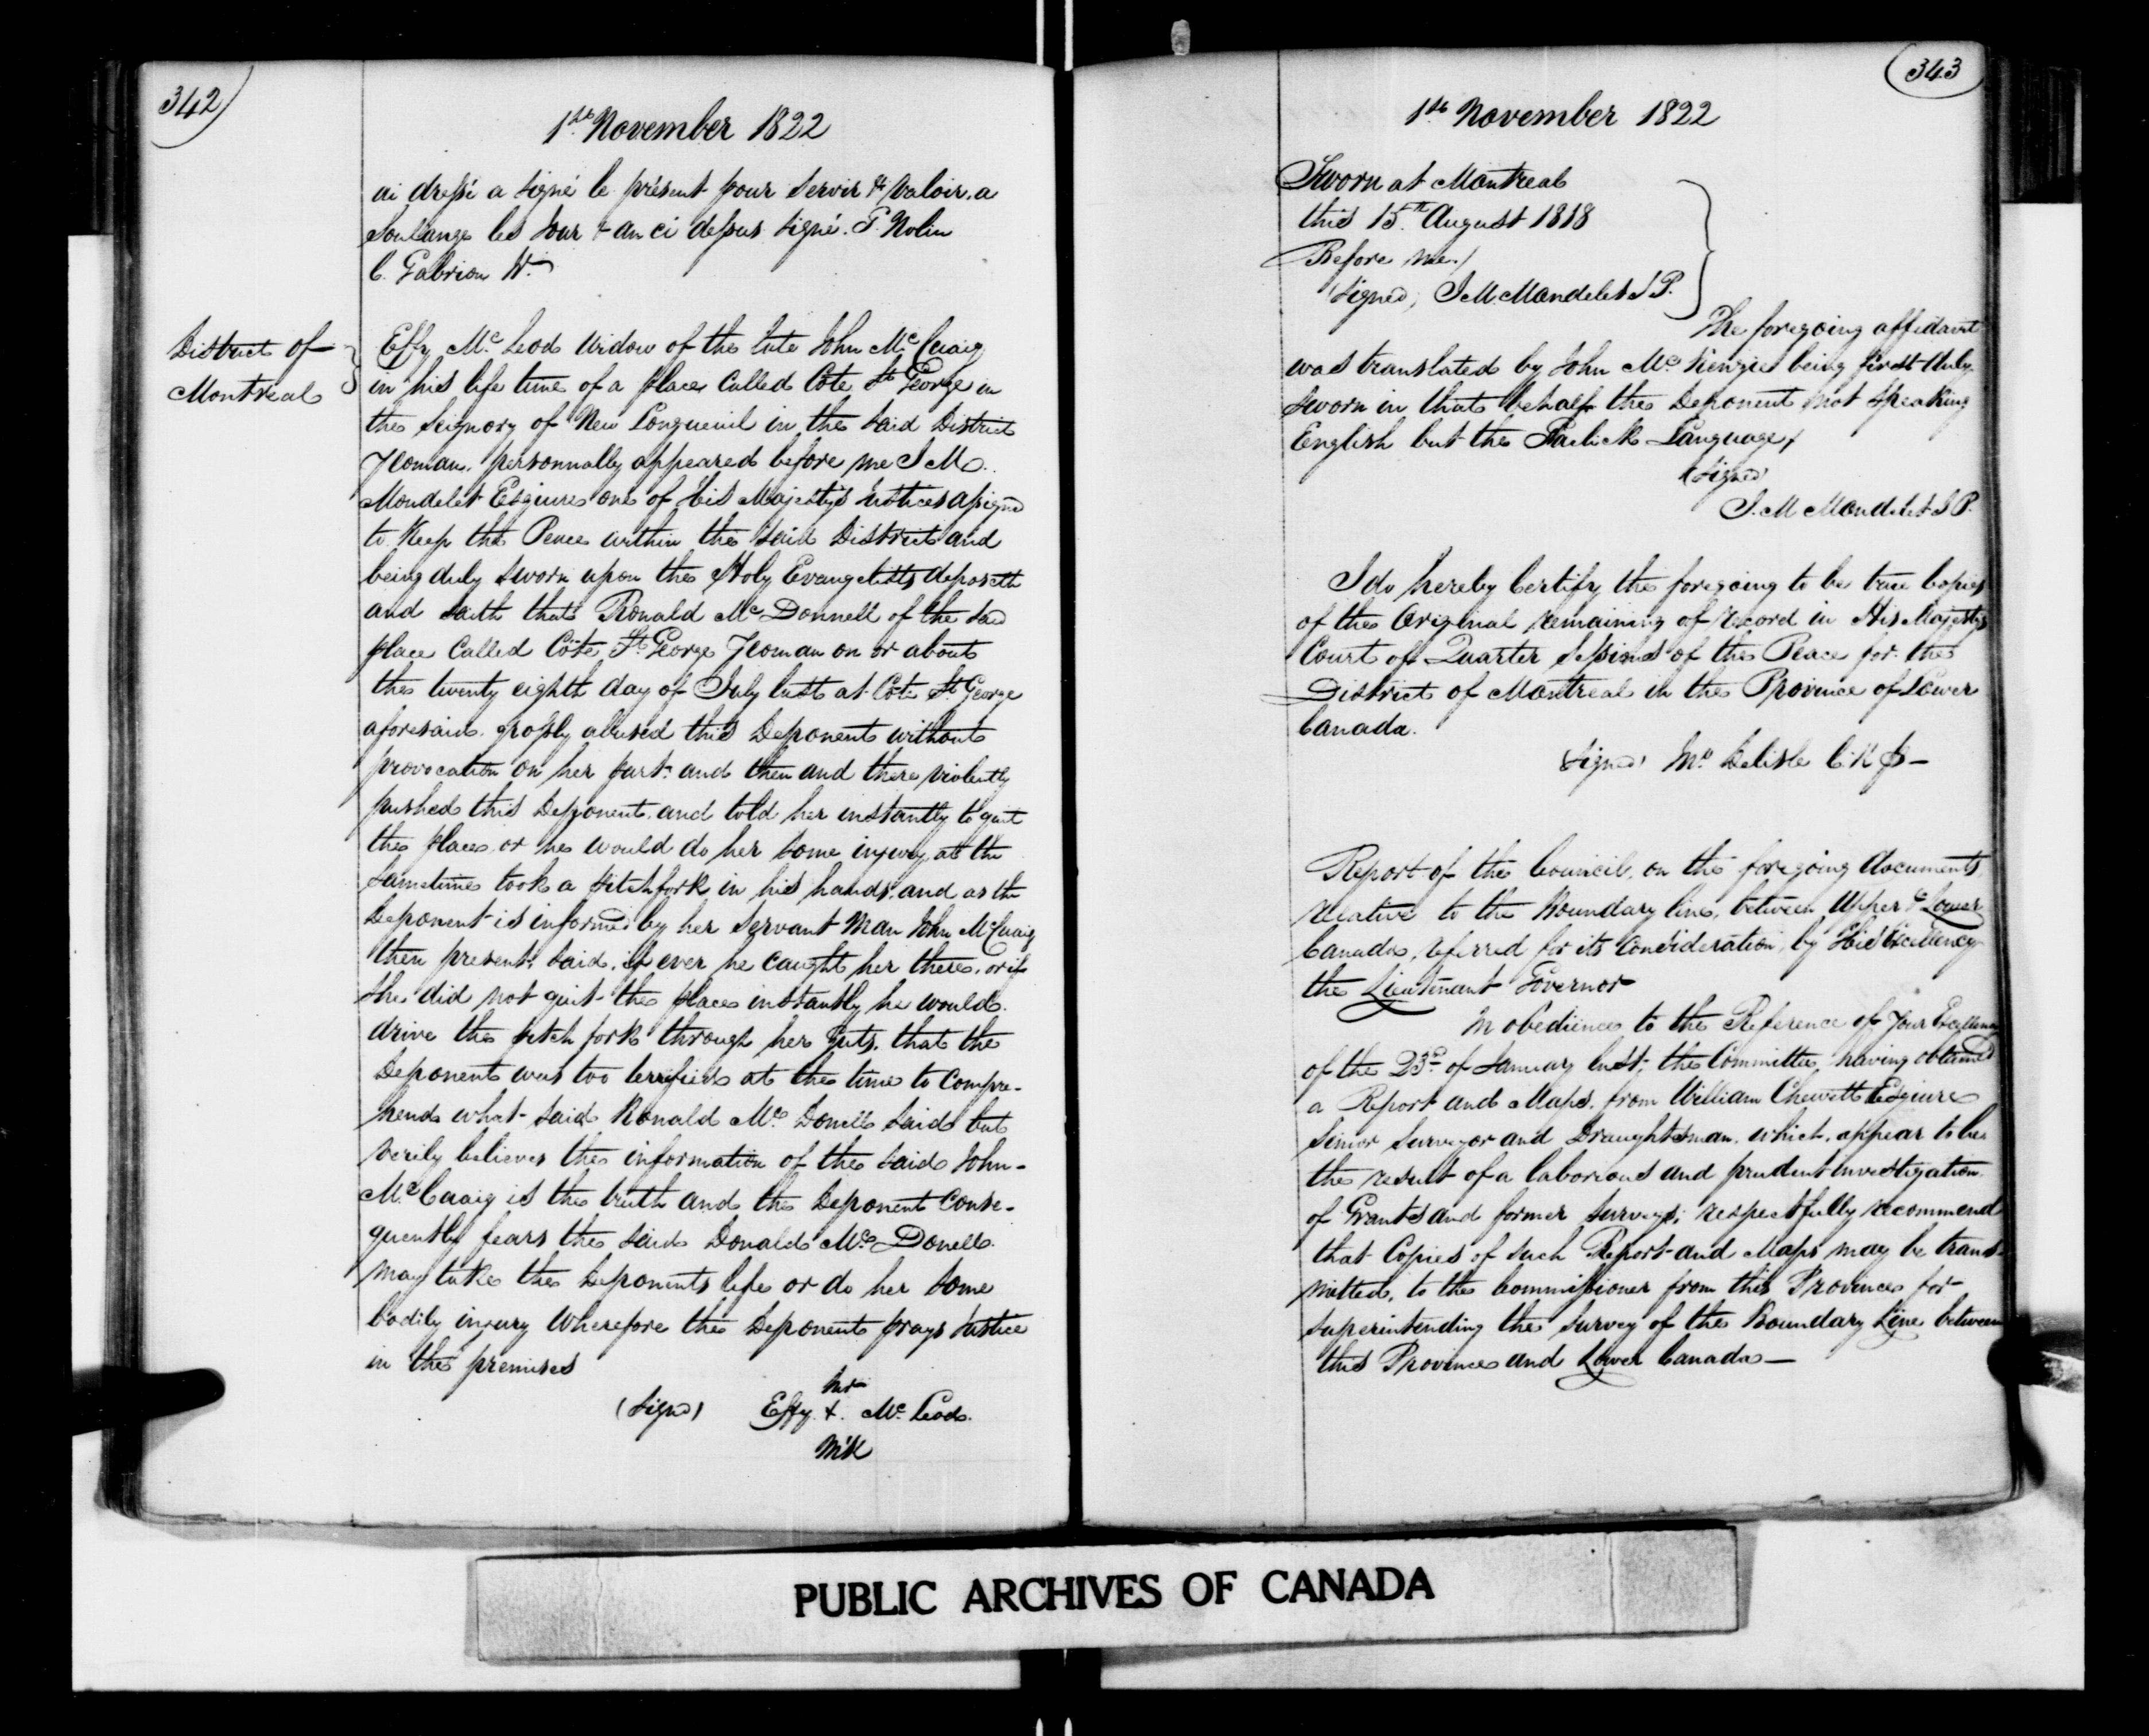 342
1st November 1822
ai dressé a signé le présent pour servir & valoir. a
Soulange les Jour & an ci dessus signé. P. Nolin
C. Gabrion N.
District of
Montreal
Effy Mc Leod Widow of the late John Mc Cuaig
in his life time of a place Called Cote St George in
the Seignory of New Longueuil in the said District
Yeoman. personnally appeared before me J M.
Mondelet Esquire one of his Majesty's Justices assigned
to Keep the Peace within the said District and
being duly sworn upon the Holy Evangelists deposeth
and saith that Ronald Mc Donnell of the said
place Called Côte St George Yeoman on or about
the twenty eighth day of July last at Cote St George
aforesaid. grossly abused this Deponent without
provocation on her part. and then and there violently
pushed this Deponent. and told her instantly to quit
the place, or he would do her some injury, at the
sametime took a pitchfork in his hands, and as the
Deponent is informed by her Servant Man John McCuaig
then present, said, if ever he caught her there, or if
she did not quit the place instantly he would
drive the pitch fork through her guts. that the
Deponent was too terrified at the time to Compre-
hend what said Ronald Mc Donell said but
verily believes the information of the said John
Mc Cuaig is the truth and the Deponent Conse-
quently fears the said Donald Mc Donell
may take the Deponents life or do her some
bodily injury Wherefore the Deponent prays Justice
in the premises
her
(signed) Effy + Mc Leod.
M'k
343
1st November 1822
Sworn at Montreal
this 15th August 1818
Before me /
(signed) J M. Mondelet J P.
The foregoing affidavit
was translated by John Mc Kenzie being first duly
sworn in that behalf the Deponent not speaking
English but the Gaelick Language /
(signed)
J. M Mondelet J P.
I do hereby Certify the foregoing to be true Copies
of the Original remaining of record in His Majesty's
Court of Quarter Sessions of the Peace for the
District of Montreal in the Province of Lower
Canada.
signed Delisle
Report of the Council, on the foregoing documents
relative to the Boundary line, between Upper & Lower
Canada, referred for its Consideration, by His Excellency
the Lieutenant Governor
In obedience to the Reference of Your Excellency
of the 23d of January last, the Committee, having obtained
a Report and Maps, from William Chewett Esquire
Senior Surveyor and Draughtsman, which, appear to be
the result of a laborious and prudent investigation
of Grants and former Surveys; respectfully recommend
that Copies of such Report and Maps may be trans-
mitted, to the Commissioner from this Province for
superintending the Survey of the Boundary Line between
this Province and Lower Canada —
PUBLIC ARCHIVES OF CANADA